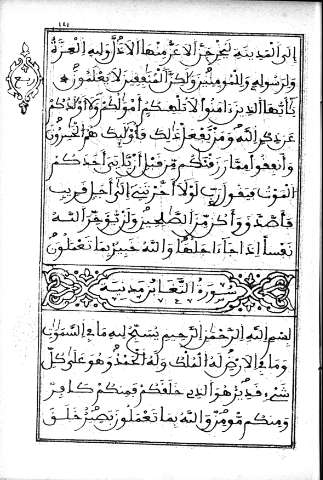 ٤٤١
ربع
إلى المدينة ليخرجن الأعز منها الأذل ولله العزة
ولرسوله وللمؤمنين ولكن المنافقين لا يعلمون
يا أيها الذين ءامنوا لا تلهكم أموالكم ولا أولادكم
عن ذكر الله ومن يفعل ذلك فأولئك هم الخاسرون
وأنفقوا مما رزقناكم من قبل أن يأتي أحدكم
الموت فيقول رب لولا أخرتني إلى أجل قريب
فأصدق وأكن من الصالحين ولن يؤخر الله
نفسا إذا جاء اجلها والله خبير بما تعملون
سورة التغابن مدنية
بسم الله الرحمن الرحيم يسبح لله ما في السموات
وما في الأرض له الملك وله الحمد وهو على كل
شيء قدير هو الذي خلقكم فمنكم كافر
ومنكم مؤمن والله بما تعملون بصير خلق